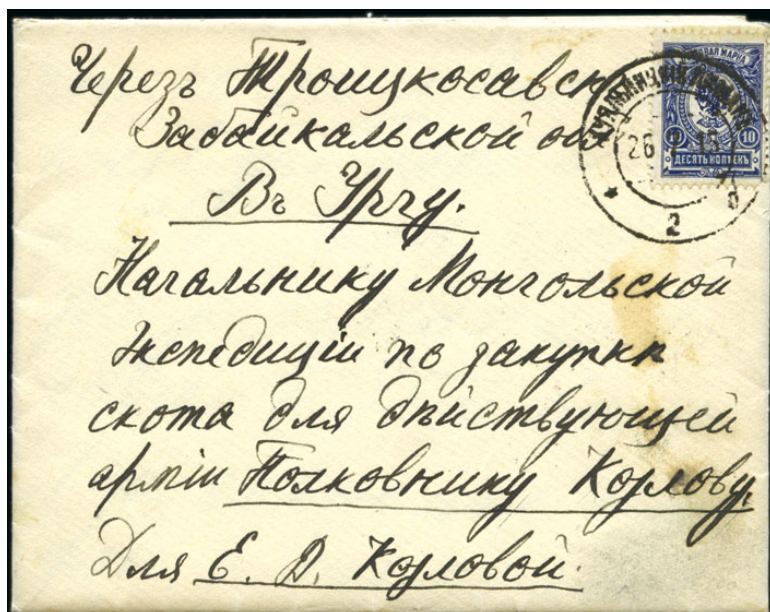 Черезъ Троицкосавскъ
Забайкальской обл
Въ Ургу.
Начальнику Монгольской
Экспедиціи по закупкѣ
скота для дѣйствующей
арміи Полковнику Козлову.
Для Е. В. Козловой.
МАРКА
10 10
ДЕСЯТЬ КОПѢЕКЪ
26
2